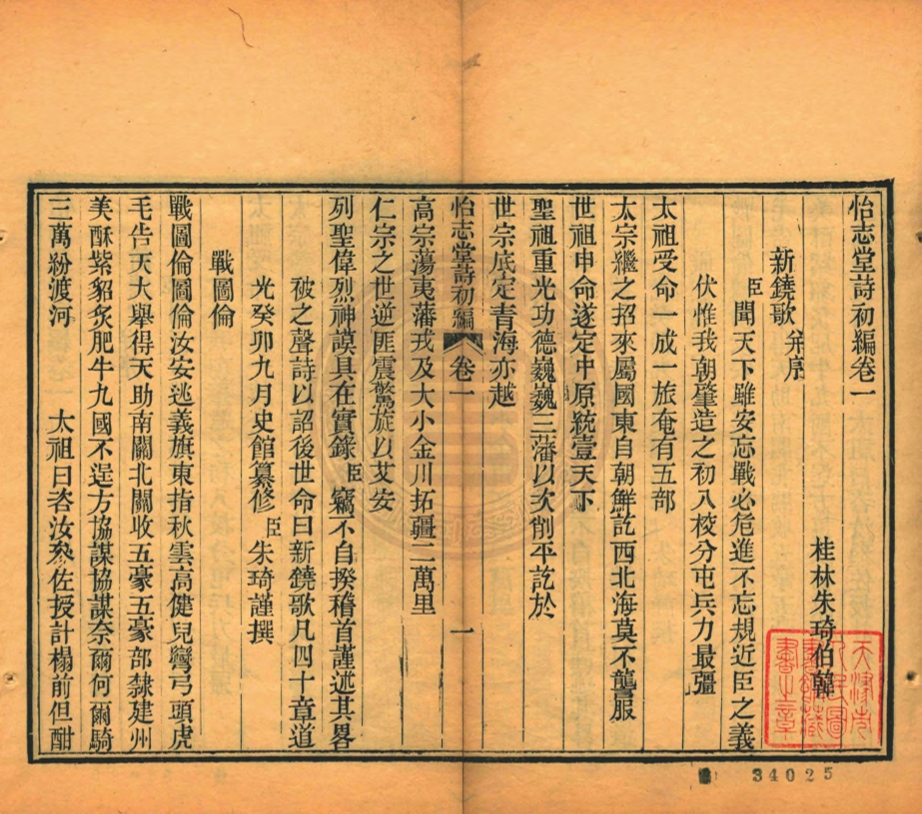 怡志堂詩初編卷一
桂林朱琦伯韓
新鐃歌 并序
臣聞天下雖安忘戰必危進不忘規近臣之義
伏惟我朝肇造之初八校分屯兵力最彊
太祖受命一成一旅奄有五部
太宗繼之招來屬國東自朝鮮訖西北海莫不讋服
世祖申命遂定中原統壹天下
聖祖重光功德巍巍三藩以次削平訖於
世宗底定青海亦越
怡志堂詩初編 卷一 一
高宗蕩夷藩戎及大小金川拓疆二萬里
仁宗之世逆匪震驚旋以艾安
列聖偉烈神謨具在實錄臣竊不自揆稽首謹述其畧
被之聲詩以詔後世命曰新鐃歌凡四十章道
光癸卯九月史館纂修臣朱琦謹撰
戰圖倫
戰圖倫圖倫汝安逃義旗東指秋雲高健兒彎弓頭虎
毛告天大舉得天助南關北關收五豪五豪部隸建州
美酥紫貂炙肥牛九國不逞方協謀協謀奈爾何爾騎
三萬紛渡河 太祖曰咨汝叅佐授計榻前但酣
天津市人民圖書館藏書之章
34025